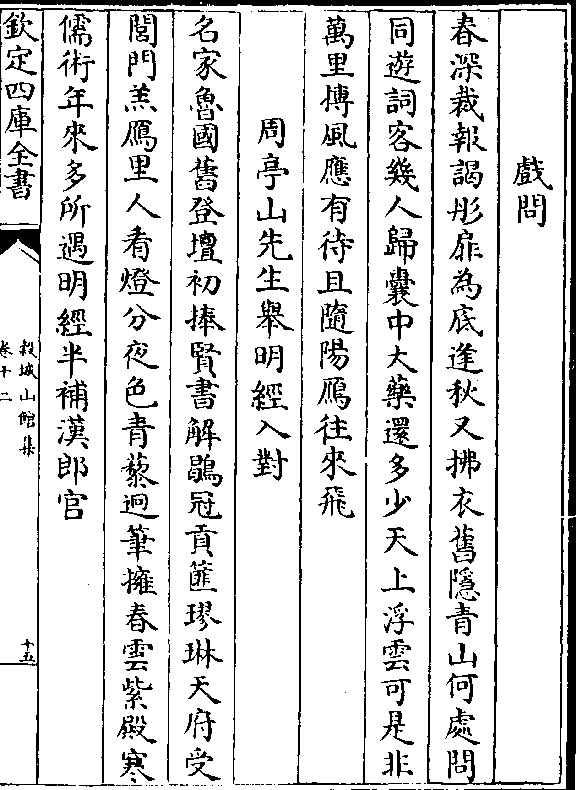 戲問
春深裁報謁彤扉為底逢秋又拂衣舊隱青山何處問
同遊詞客幾人歸囊中大藥還多少天上浮雲可是非
萬里摶風應有待且隨陽鴈往來飛
周亭山先生舉明經入對
名家魯國舊登壇初捧賢書解鶡冠貢篚璆琳天府受
閭門羔鴈里人看燈分夜色青藜迥筆擁春雲紫殿寒
儒術年來多所遇明經半補漢郎官
欽定四庫全書
穀城山館集
卷十二
十五